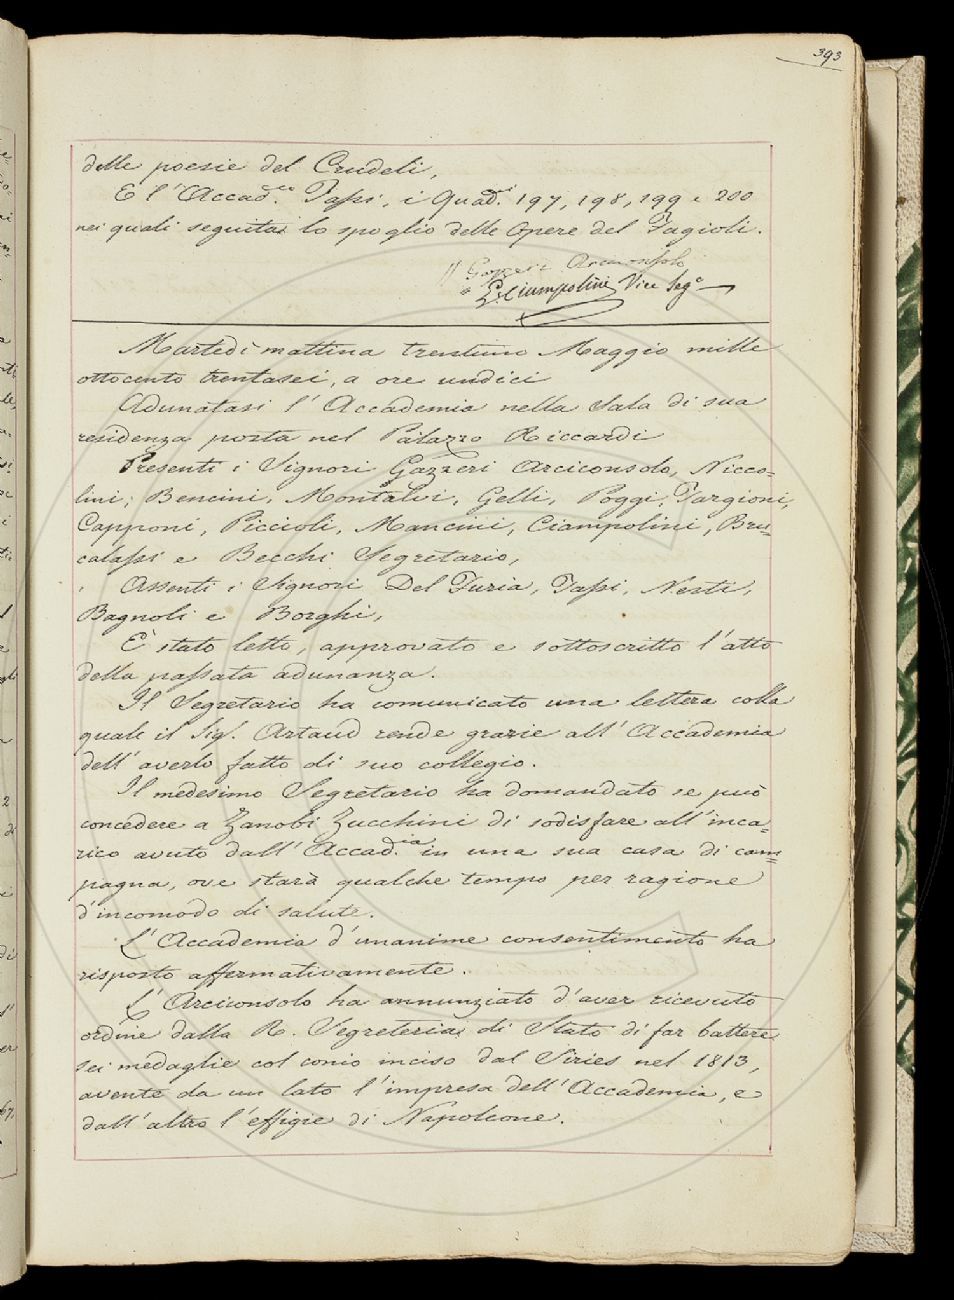 393
delle poesie del Crudeli,
E l'Accad.co Tassi, i Quad.ni 197, 198, 199 e 200
nei quali seguita lo spoglio delle Opere del Fagioli.
Gazzeri Arciconsolo
G. Ciampolini Vice Seg.o
Martedì mattina trentuno Maggio mille
ottocento trentasei, a ore undici
Adunatasi l'Accademia nella Sala di sua
residenza posta nel Palazzo Riccardi
Presenti i Signori Gazzeri Arciconsolo, Nicco-
lini, Bencini, Montalvi, Gelli, Poggi, Targioni,
Capponi, Piccioli, Mancini, Ciampolini, Bru-
calassi e Becchi Segretario,
Assenti i Signori Del Furia, Tassi, Nesti,
Bagnoli e Borghi,
È stato letto, approvato e sottoscritto l'atto
della passata adunanza.
Il Segretario ha comunicato una lettera colla
quale il Sig.r Artaud rende grazie all'Accademia
dell'averlo fatto di suo collegio.
Il medesimo Segretario ha domandato se può
concedere a Zanobi Zucchini di sodisfare all'inca-
rico avuto dall'Accad.ia in una sua casa di cam-
pagna, ove starà qualche tempo per ragione
d'incomodo di salute.
L'Accademia d'unanime consentimento ha
risposto affermativamente.
L'Arciconsolo ha annunziato d'aver ricevuto
ordine dalla R. Segreteria di Stato di far battere
sei medaglie col conio inciso dal Siries nel 1813,
avente da un lato l'impresa dell'Accademia, e
dall'altro l'effigie di Napoleone.